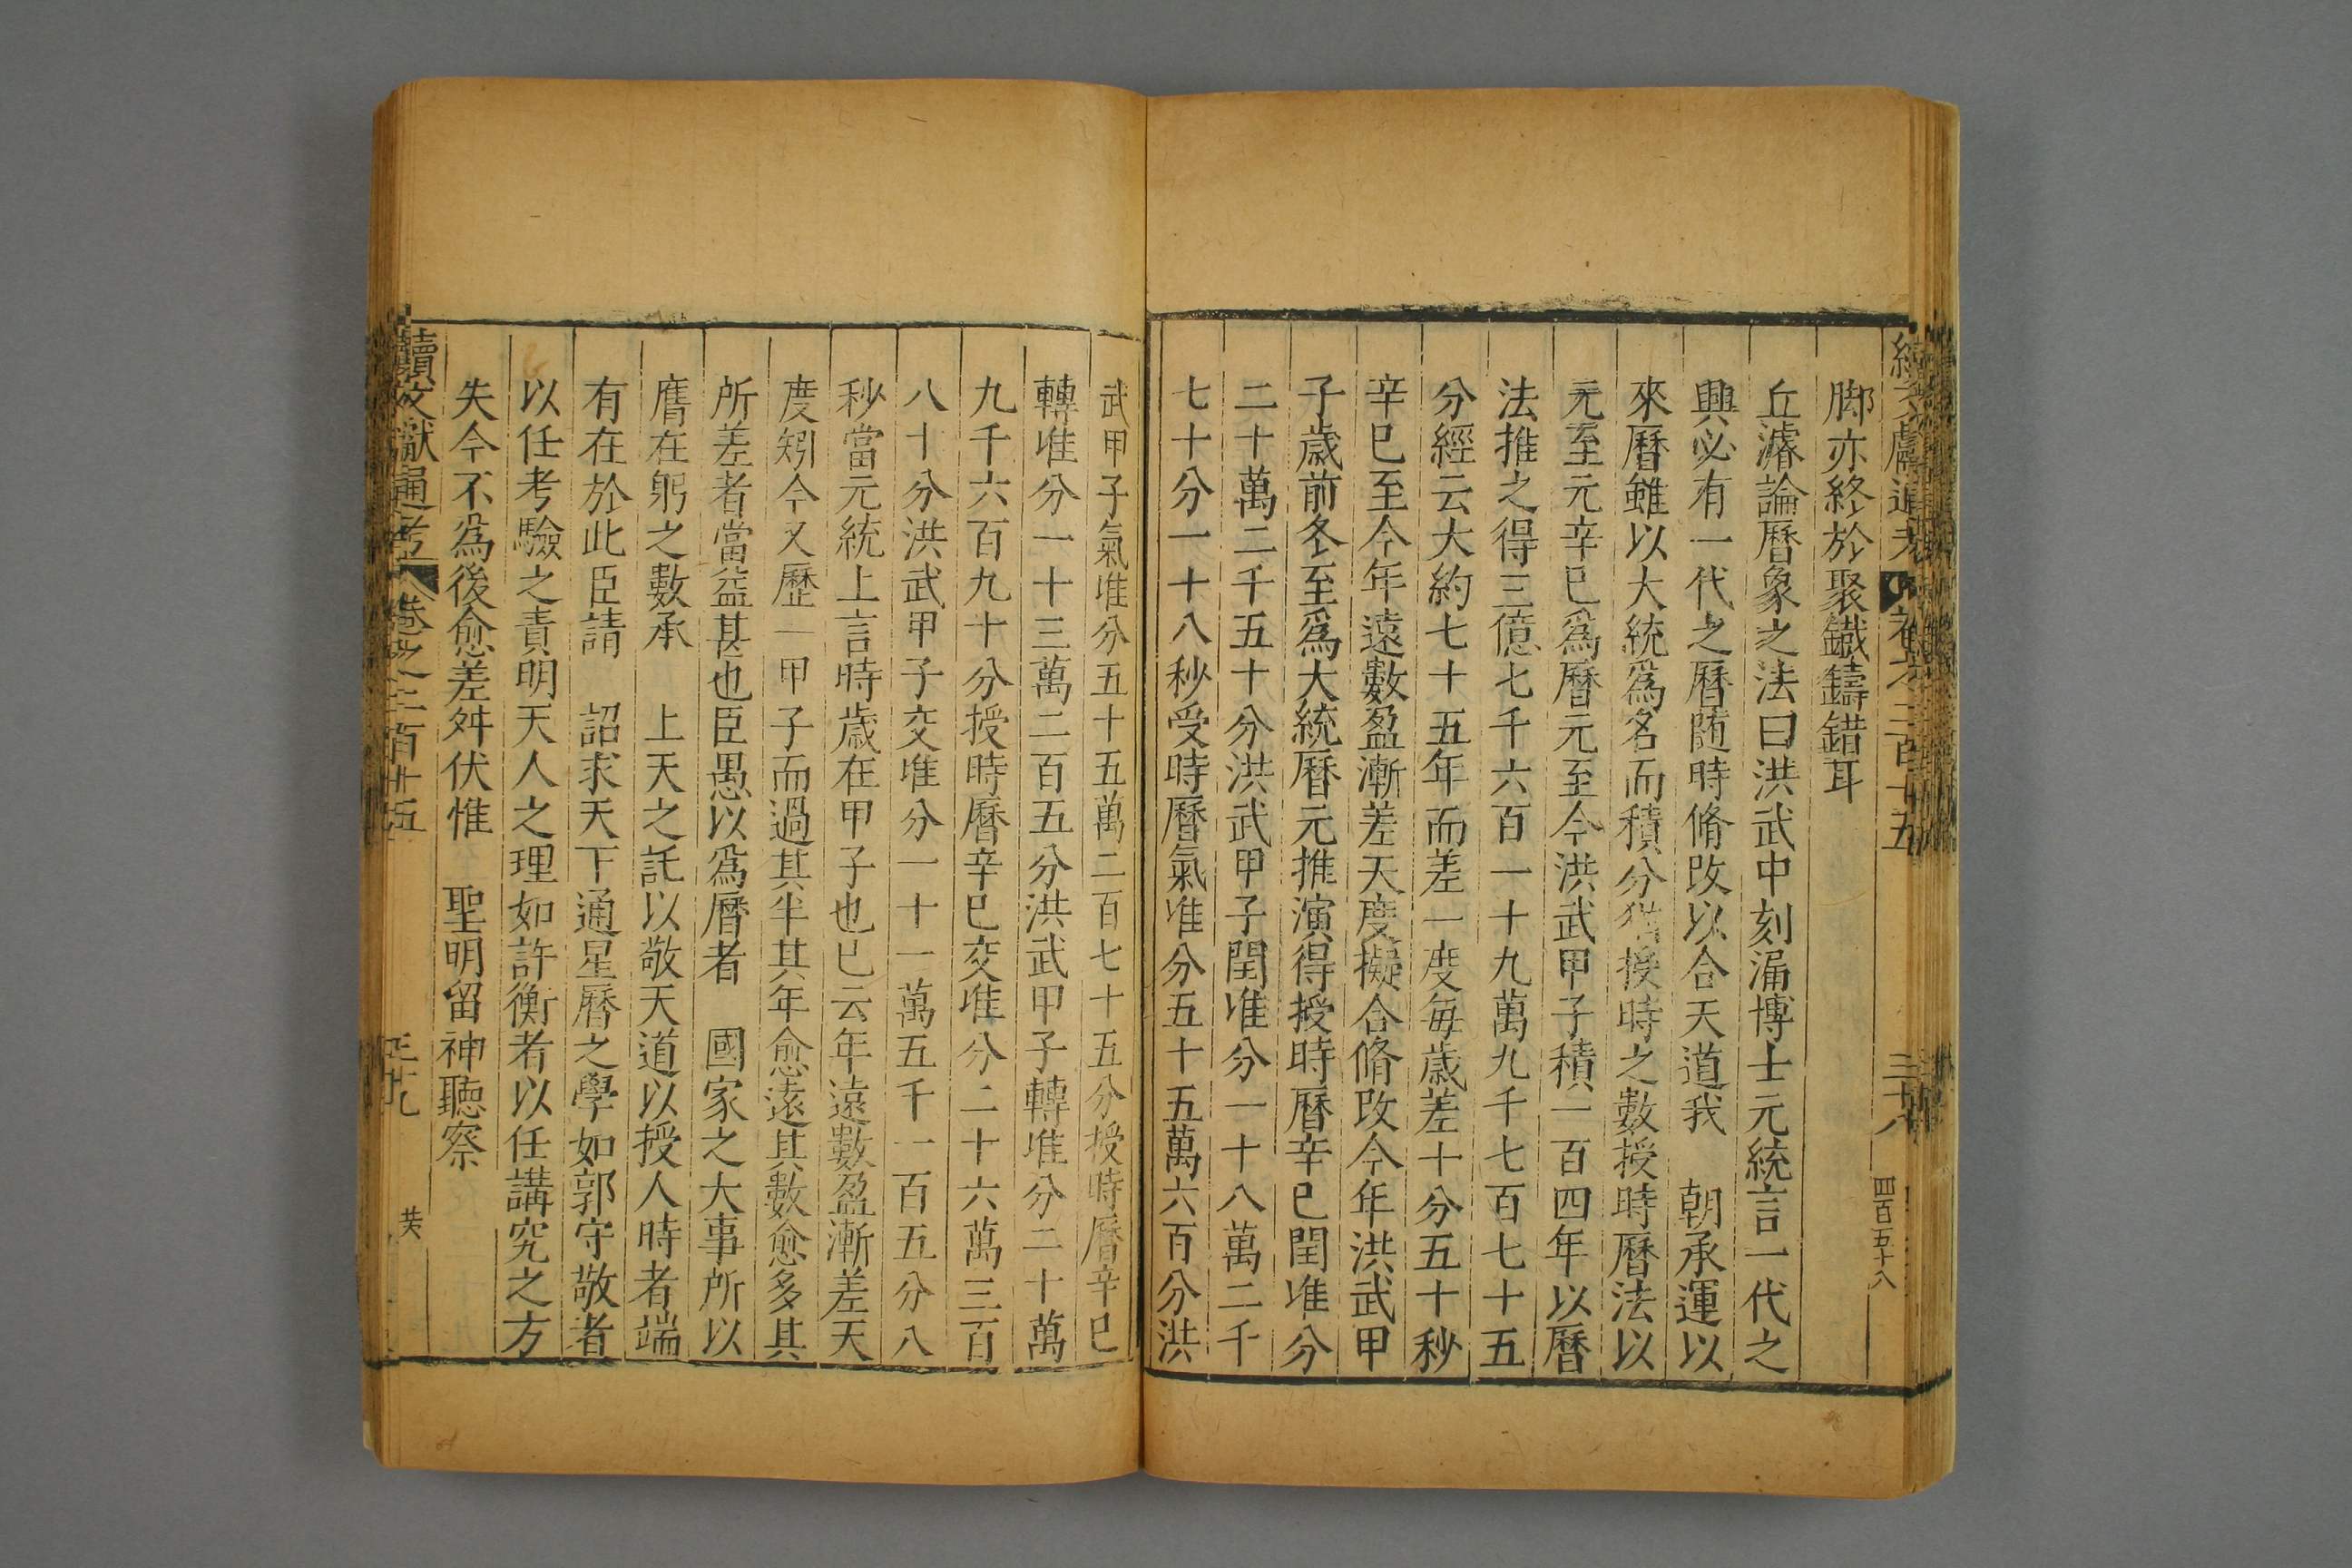 脚亦終於聚鐵鑄錯耳
丘濬論曆象之法曰洪武中刻漏博士元統言一代之
興必有一代之曆随時脩改以合天道我　朝承運以
來曆雖以大統爲名而積分猶授時之數授時曆法以
元至元辛巳爲曆元至今洪武甲子積一百四年以曆
法推之得三億七千六百一十九萬九千七百七十五
分經云大約七十五年而差一度每歲差十分五十秒
辛巳至今年遠數盈漸差天度擬合脩改今年洪武甲
子歲前冬至爲大統曆元推演得授時曆辛巳閏准分
二十萬二千五十分洪武甲子閏准分一十八萬二千
七十分一十八秒受時曆氣准分五十五萬六百分洪
武甲子氣准分五十五萬二百七十五分授時曆辛巳
轉准分一十三萬二百五分洪武甲子轉准分二十萬
九千六百九十分授時曆辛巳交准分二十六萬三百
八十分洪武甲子交准分一十一萬五千一百五分八
秒當元統上言時歲在甲子也已云年遠數盈漸差天
度矧今又歷一甲子而過其半其年愈遠其數愈多其
所差者當益甚也臣愚以爲曆者　國家之大事所以
膺在躬之數承　上天之託以敬天道以授人時者端
有在於此臣請　詔求天下通星曆之學如郭守敬者
以任考驗之責明天人之理如許衡者以任講究之方
失今不爲後愈差舛伏惟　聖明留神聽察
續文獻通考　卷之二百十五　三十八　四百五十八
續文獻通考　卷之二百十五　三十九